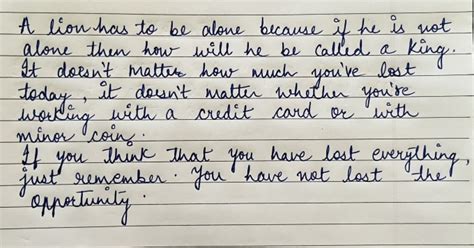 A lion has to be alone because if he is not
alone then how will he be called a King.
It doesn't matter how much you've lost
today, it doesn't matter whether you're
working with a credit card or with
minor coin.
If you think that you have lost everything,
just remember. You have not lost the
opportunity.